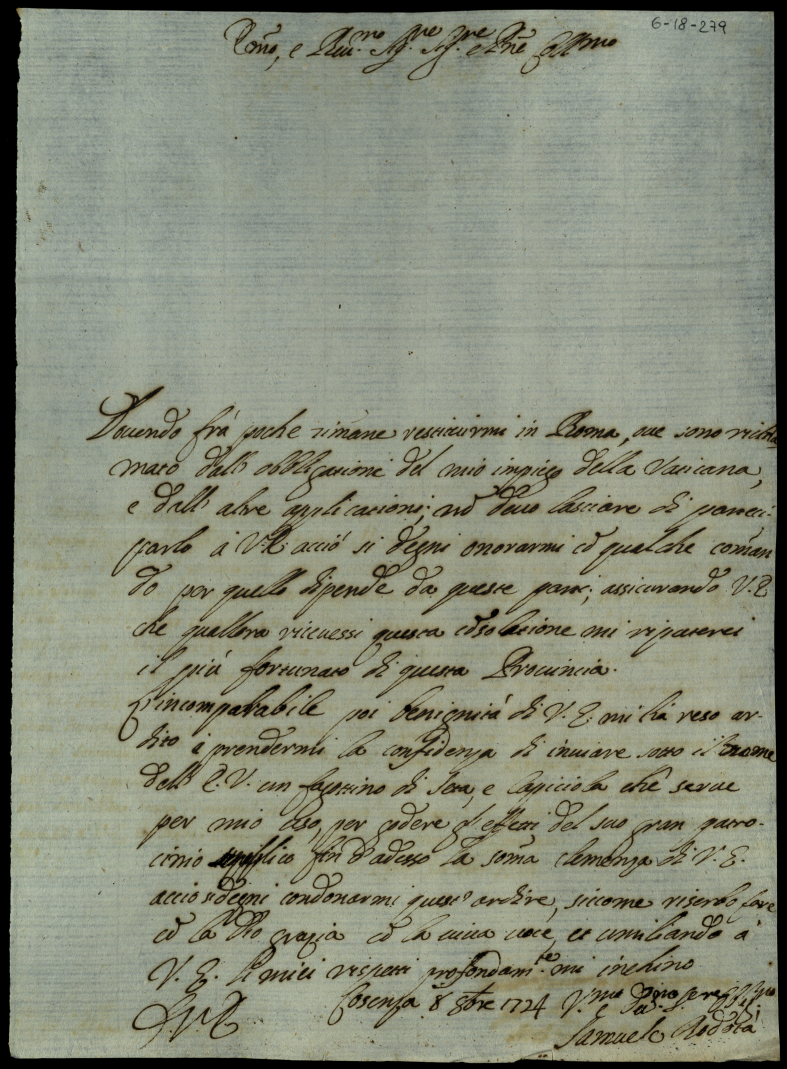 6-18-279
Emo, e Rev.mo Sig.re Sig.re e Pne Collmo
Dovendo frà poche simane restituirmi in Roma, ove sono richia
mato dall' obbligazione del mio impiego della Vaticana,
e dall' altre applicazioni; nō devo lasciare di parteci-
parlo à V.E. acciò si degni onorarmi cō qualche coman
do per quello dipende da queste parti; assicurando V.E.
che quallora ricevessi questa cōsolatione mi riputerei
il più fortunato di questa Provincia.
L'incomparabile poi benignità di V.E. mi hà reso ar-
dito à prendermi la confidenza di inviare sotto il nome
dell' E.V. un fagottino di seta, e capicciola che serve
per mio uso, per godere gl'effetti del suo gran patro-
cinio supplico fin d'adesso la soma clemenza di V.E.
acciò si degni condonarmi quest' ardire, siccome riserbo fare
cō la Dio grazia cō la viva voce, et umiliando à
V.E. li miei rispetti profondam.te mi inchino
Cosenza 8 8bre 1724 V.mo
Samuele Rodotà